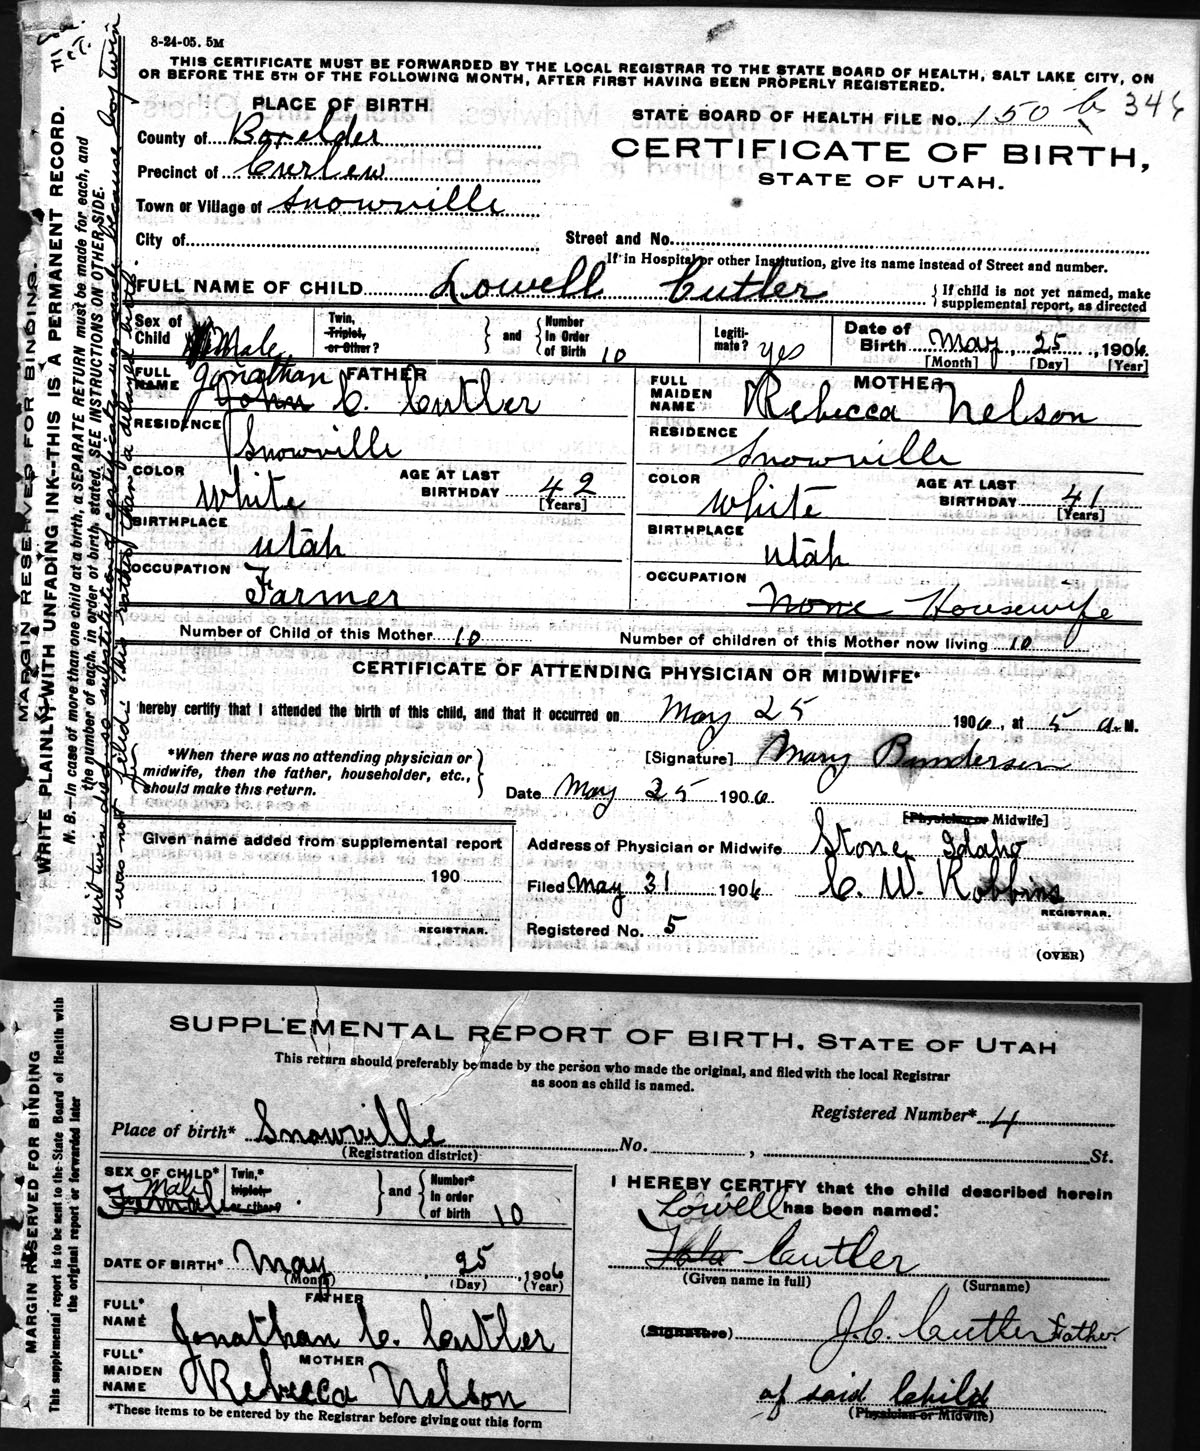 8-24-05. 5M
THIS CERTIFICATE MUST BE FORWARDED BY THE LOCAL REGISTRAR TO THE STATE BOARD OF HEALTH, SALT LAKE CITY, ON
OR BEFORE THE 5TH OF THE FOLLOWING MONTH, AFTER FIRST HAVING BEEN PROPERLY REGISTERED.
PLACE OF BIRTH
STATE BOARD OF HEALTH FILE NO. 150 b 346
County of Boxelder
CERTIFICATE OF BIRTH,
Precinct of Curlew
STATE OF UTAH.
Town or Village of Snowville
City of
Street and No.
If in Hospital or other Institution, give its name instead of Street and number.
FULL NAME OF CHILD Lowell Cutler
If child is not yet named, make
supplemental report, as directed
Sex of Child Male
Twin, Triplet, or Other?
and
Number In Order of Birth 10
Legiti- mate? yes
Date of Birth May 25, 1906
[Month] [Day] [Year]
FATHER
FULL NAME Jonathan John C. Cutler
RESIDENCE Snowville
COLOR White
AGE AT LAST BIRTHDAY 42
[Years]
BIRTHPLACE Utah
OCCUPATION Farmer
MOTHER
FULL MAIDEN NAME Rebecca Nelson
RESIDENCE Snowville
COLOR White
AGE AT LAST BIRTHDAY 41
[Years]
BIRTHPLACE Utah
OCCUPATION None Housewife
Number of Child of this Mother 10
Number of children of this Mother now living 10
CERTIFICATE OF ATTENDING PHYSICIAN OR MIDWIFE*
I hereby certify that I attended the birth of this child, and that it occurred on May 25 1906, at 5 a. M.
*When there was no attending physician or
midwife, then the father, householder, etc.,
should make this return.
[Signature] Mary Bundersen
Date May 25 1906
[Physician or Midwife]
Given name added from supplemental report
190
REGISTRAR.
Address of Physician or Midwife Stone Idaho
Filed May 31 1906 C. W. Robbins
REGISTRAR.
Registered No. 5
(OVER)
MARGIN RESERVED FOR BINDING.
WRITE PLAINLY WITH UNFADING INK--THIS IS A PERMANENT RECORD.
N. B.--In case of more than one child at a birth, a SEPARATE RETURN must be made for each, and
the number of each, in order of birth, stated. SEE INSTRUCTIONS ON OTHER SIDE.
girl twin died so substitution of certificate was made because boy twin
was not filed this rather than a delayed birth.
SUPPLEMENTAL REPORT OF BIRTH, STATE OF UTAH
This return should preferably be made by the person who made the original, and filed with the local Registrar
as soon as child is named.
Registered Number* 4
Place of birth* Snowville
(Registration district)
No. , St.
SEX OF CHILD* Male Female
Twin,* triplet, or other?
and
Number* In order of birth 10
DATE OF BIRTH* May 25, 1906
(Month) (Day) (Year)
FATHER
FULL* NAME Jonathan C. Cutler
MOTHER
FULL* MAIDEN NAME Rebecca Nelson
*These items to be entered by the Registrar before giving out this form
I HEREBY CERTIFY that the child described herein
Lowell has been named:
Cutler
(Given name in full) (Surname)
(Signature) J. C. Cutler Father
of said Child
(Physician or Midwife)
MARGIN RESERVED FOR BINDING
This supplemental report is to be sent to the State Board of Health with
the original report or forwarded later